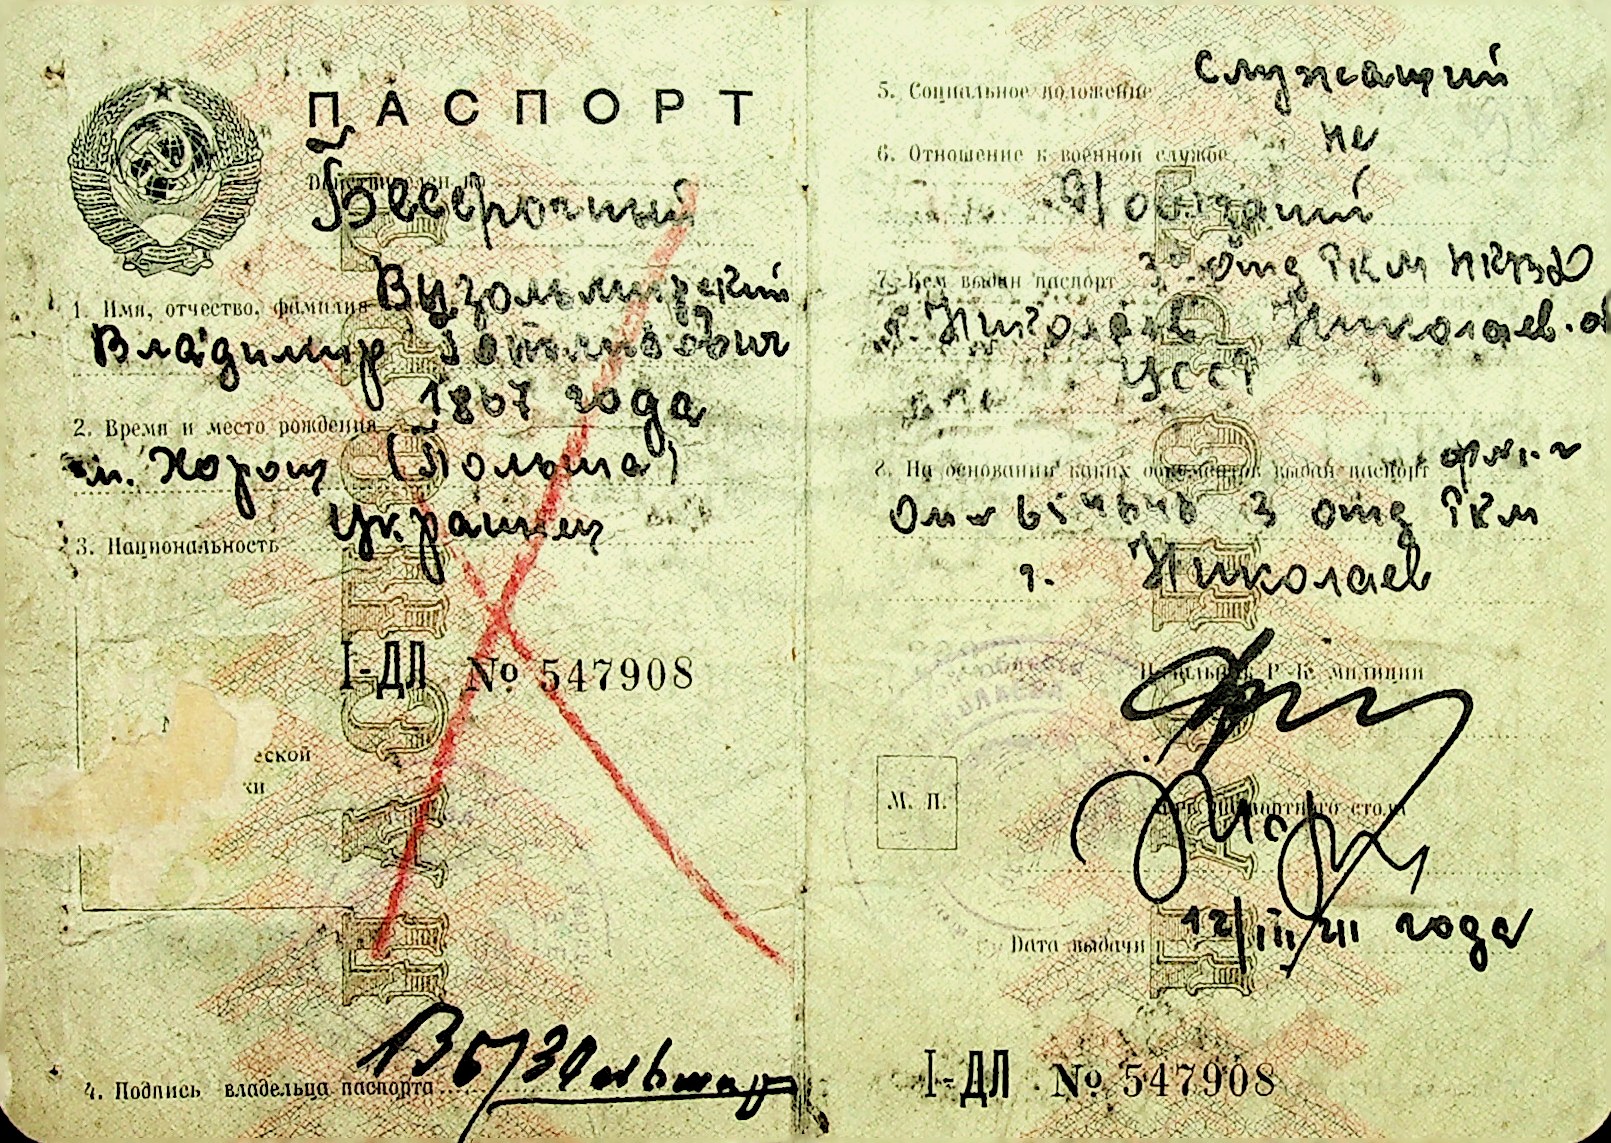 ПАСПОРТ
Бессрочный
1. Имя, отчество, фамилия
Владимир
1867 года
2. Время и место рождения
м. Хорощ (Польша)
Украинец
3. Национальность
I-ДЛ № 547908
еской
ки
4. Подпись владельца паспорта
служащий
5. Социальное положение
не
6. Отношение к военной службе
7. Кем выдан паспорт 3 отд РКМ НКВД
г. Николаев Николаев. об
УССР
8. На основании каких документов выдан паспорт
3 отд РКМ
г. Николаев
Начальник Р.-К. милиции
М. П.
паспортного стола
Дата выдачи 12/III 41 года
I-ДЛ № 547908